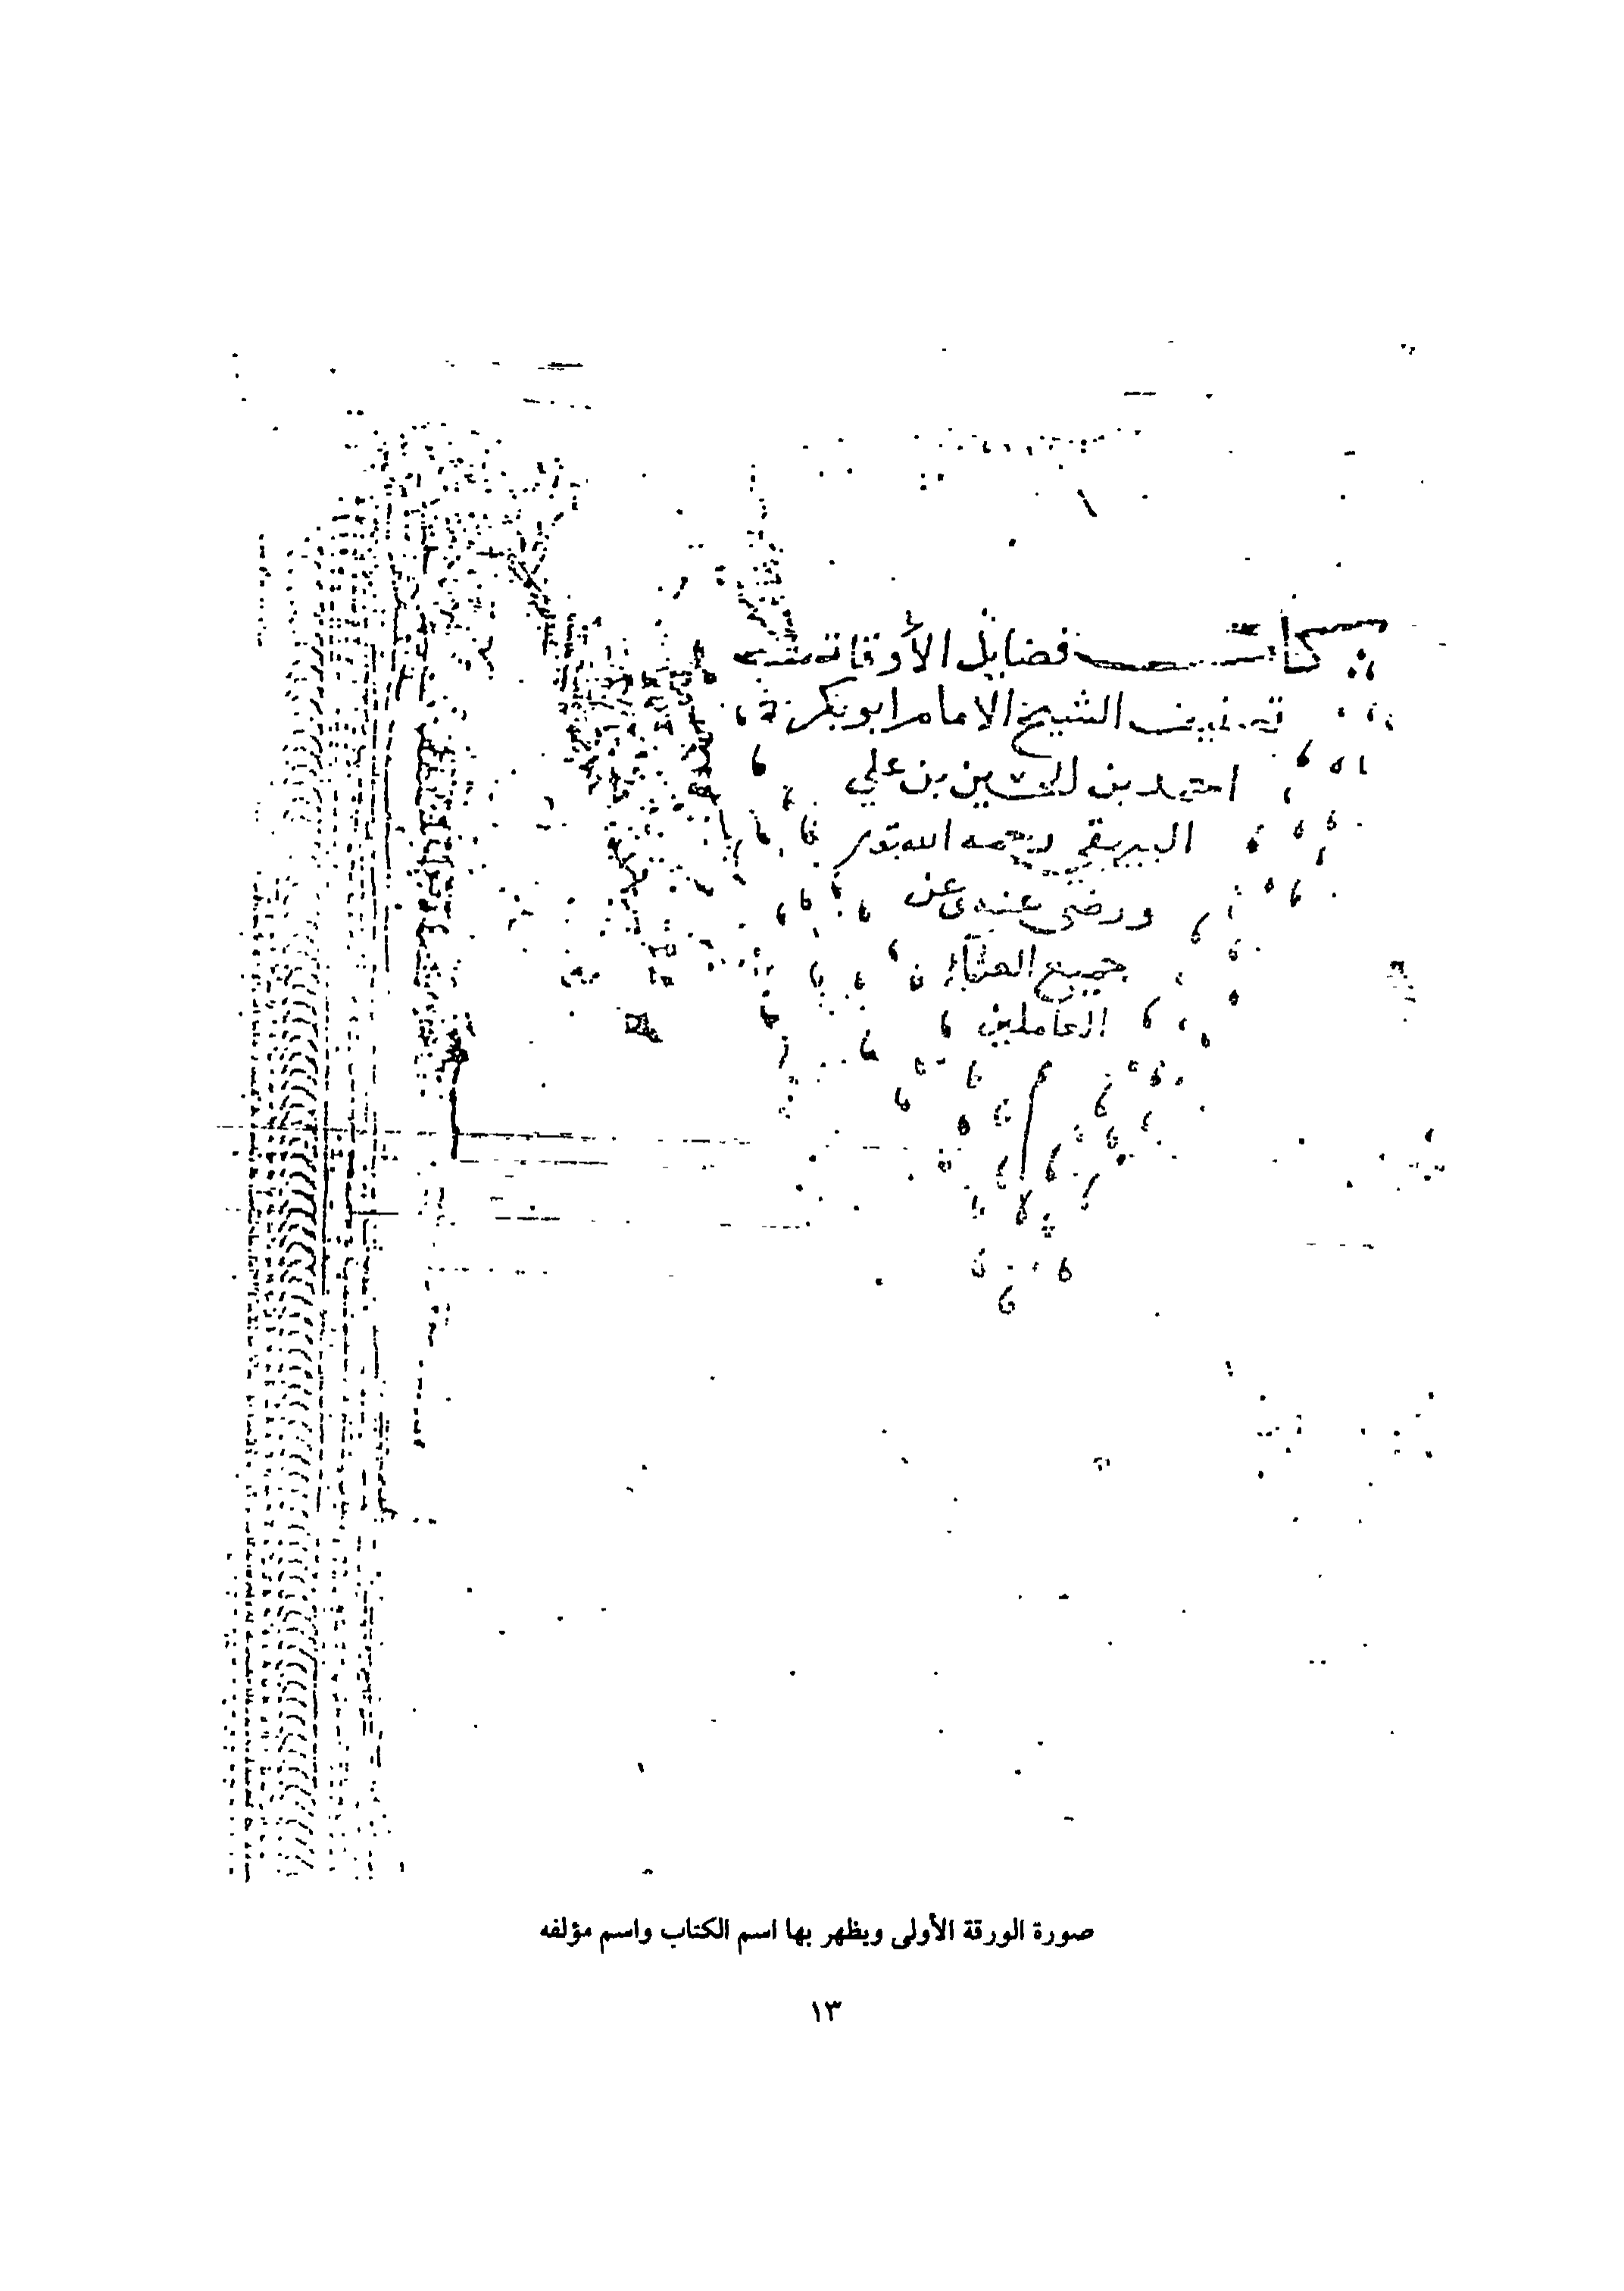 كتاب فضايل الأوقات
تصنيف الشيخ الامام ابو بكر
احمد بن الحسين بن علي
البيهقي رحمه الله
ورضي عنه وعن
جميع العلماء
العاملين
صورة الورقة الأولى ويظهر بها اسم الكتاب واسم مؤلفه
١٣